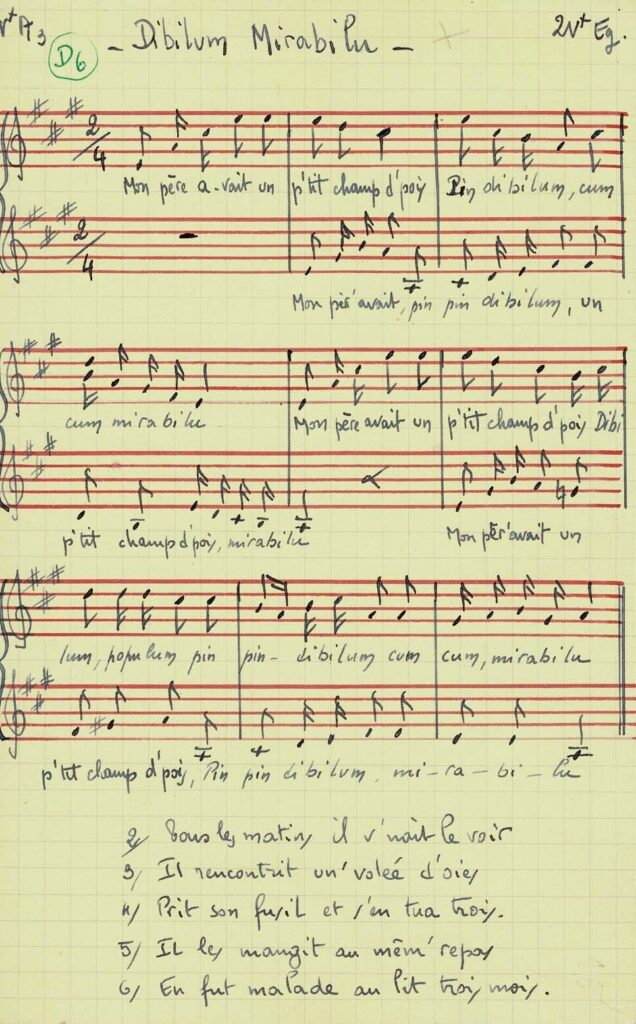 D6
- Dibilum Mirabilu -
2 Vt Eg.
2/4
Mon père a-vait un p'tit champ d'pois Pin dibilum, cum
2/4
Mon pèr'avait, pin pin dibilum, un
cum mirabilu Mon père avait un p'tit champ d'pois Dibi
p'tit champ d'pois, mirabilu Mon pèr'avait un
lum, populum pin pin- dibilum cum cum, mirabilu
p'tit champ d'pois, Pin pin dibilum, mi-ra-bi-lu
2/ Tous les matins il v'nait le voir
3/ Il rencontrit un' voleé d'oies
4/ Prit son fusil et s'en tua trois.
5/ Il les mangit au mêm' repas
6/ En fut malade au lit trois mois.